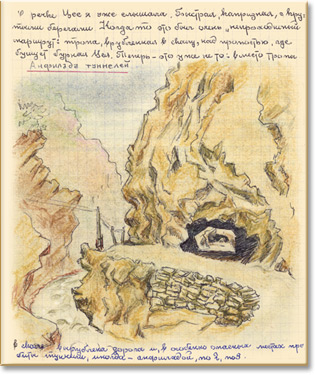 О речке Цее я уже слышала. Быстрая, капризная, с кру-
тыми берегами. Когда-то это был очень непроходимый
маршрут: тропа, врубленная в скалу, над пропастью, где
бушует бурная Цея. Теперь - это уже не то: вместо тропы
в скале вырублена дорога и, в особенно опасных местах про
биты туннели, иногда -